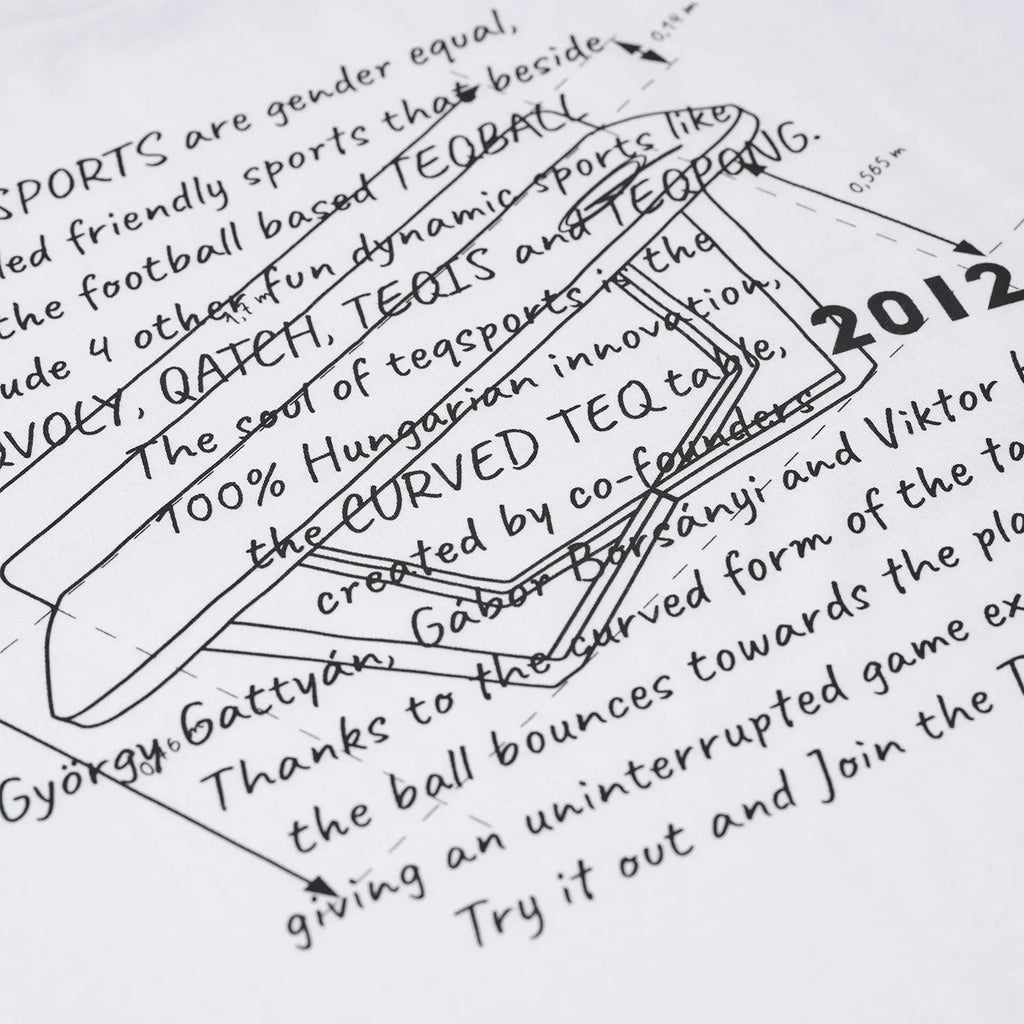 SPORTS are gender equal,
friendly sports that beside
the football based TEQBALL
4 other fun dynamic sports like
QATCH, TEQIS and TEQPONG.
The soul of teqsports is the
100% Hungarian innovation,
the CURVED TEQ table,
created by co-founders
György Gattyán, Gábor Borsányi and Viktor
Thanks to the curved form of the
the ball bounces towards the
giving an uninterrupted game
Try it out and Join the
2012
0,14 m
0,565 m
1,7 m